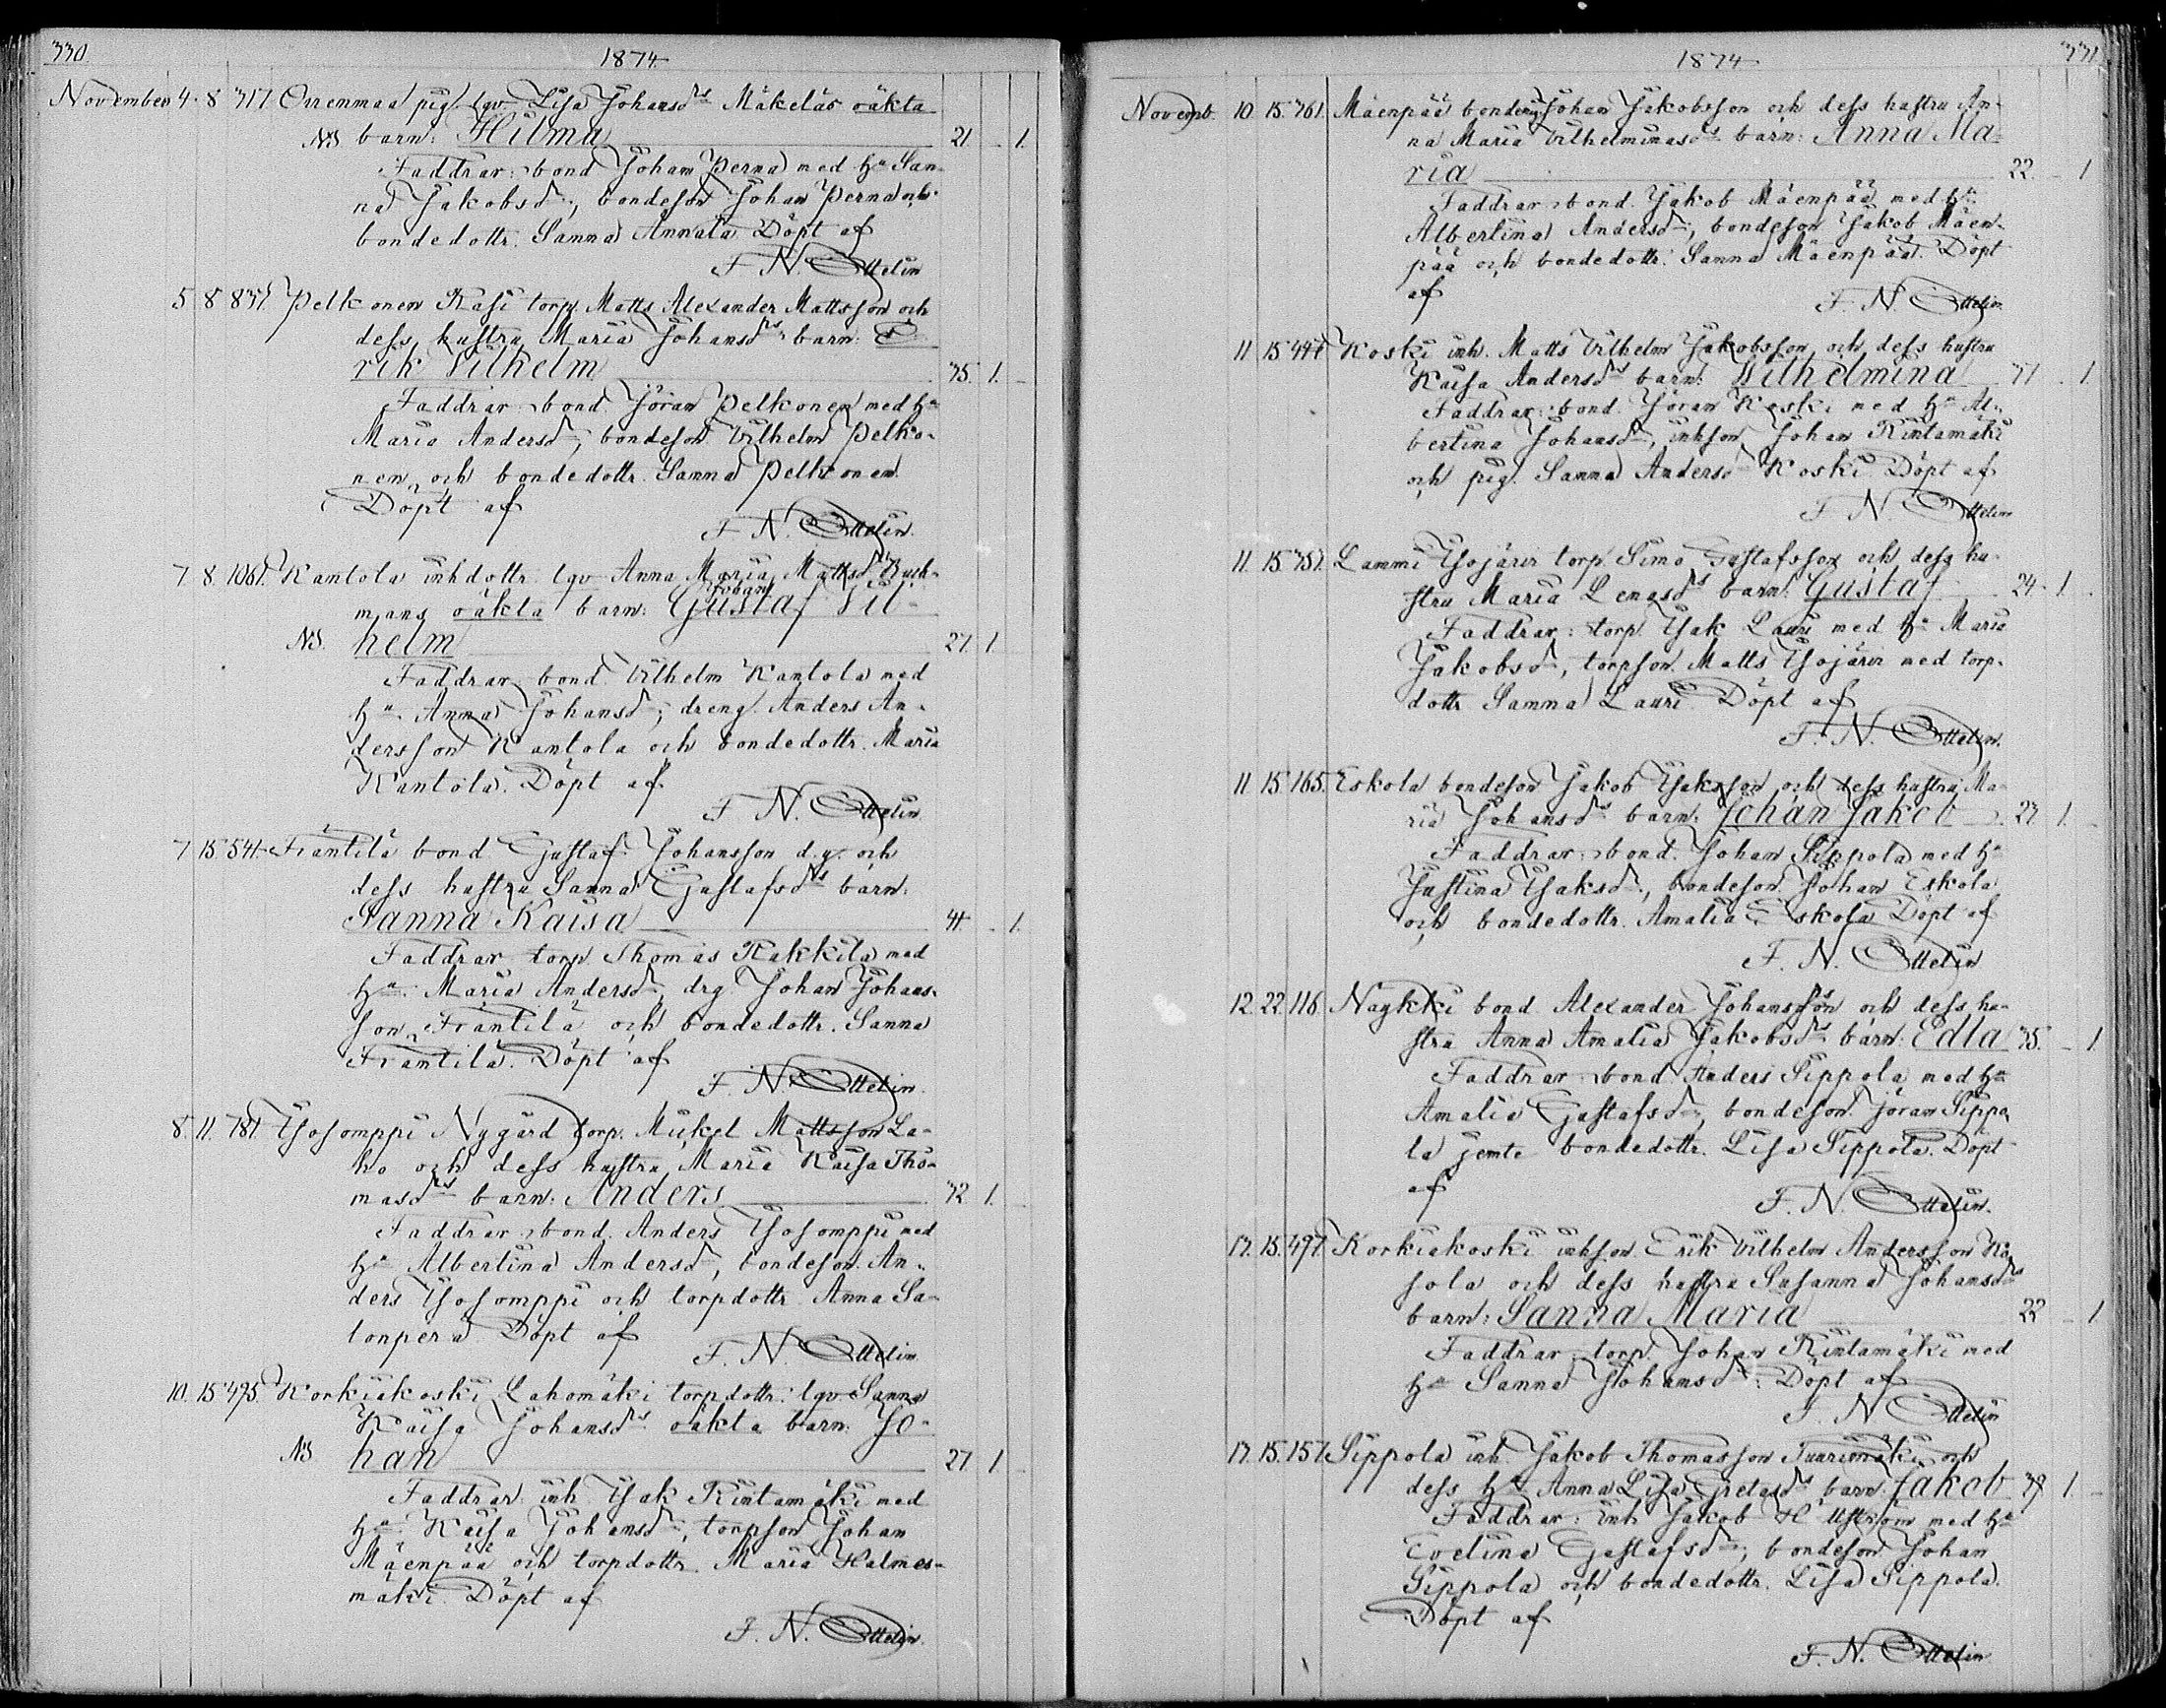 330. 1874.
November 4. 8 317. Orremmaa pig. lgv. Lisa Johansdrs Mäkeläs oäkta
NB barn: Hilma 21. - 1.
Faddrar: bond Johan Perna med ha San-
na Jakobsdr, bondeson Johan Perna och
bondedottr. Sanna Annala. Döpt af
F. N. Ottelin
5 8 837. Pelkonen Kasi torp. Matts Alexander Mattsson och
dess hustru Maria Johansdrs barn: E-
rik Vilhelm 35. 1. -
Faddrar: bond. Jöran Pelkonen med ha
Maria Andersdr, bondeson Vilhelm Pelko-
nen och bondedottr. Sanna Pelkonen.
Döpt af
F. N. Ottelin.
7. 8. 1061. Kantola inhdottr. lgv. Anna Maria Mattsdr Buck-
mans oäkta barn: Johan Gustaf Vil-
NB. helm 27. 1.
Faddrar: bond. Vilhelm Kantola med
ha Anna Johansdr; dreng. Anders An-
dersson Kantola och bondedottr. Maria
Kantola. Döpt af
F. N. Ottelin.
7 15 541. Frantila bond. Gustaf Johansson d.y. och
dess hustru Sanna Gustafsdrs barn:
Sanna Kaisa 41. - 1.
Faddrar torp. Thomas Kakkila med
ha Maria Andersdr, drg Johan Johans-
son Frantila och bondedottr. Sanna
Frantila. Döpt af
F. N. Ottelin.
8. 11. 781. Isosomppi Nygård torp. Mickel Mattsson La-
ho och dess hustru Maria Kaisa Tho-
masdrs barn: Anders 32 1.
Faddrar: bond. Anders Isosomppi med
ha Albertina Andersdr, bondeson An-
ders Isosomppi och torpdottr. Anna Sa-
lonperä. Döpt af
F. N. Ottelin
10. 15 495. Korkiakoski Lahomäki torpdottr. lgv. Sanna
Kaisa Johansdrs oäkta barn: Jo-
NB han 27. 1.
Faddrar: inh. Isak Rintamäki med
ha Kaisa Johansdr, torpson Johan
Mäenpää och torpdottr. Maria Halmes-
mäki. Döpt af
F. N. Ottelin.
1874 331
Novemb. 10. 15. 761. Mäenpää bondemåg Johan Jakobsson och dess hustru An-
na Maria Vilhelminasdrs barn: Anna Ma-
ria 22. - 1
Faddrar: bond. Jakob Mäenpää med ha
Albertina Andersdr, bondeson Jakob Mäen-
pää och bondedottr. Sanna Mäenpää. Döpt
af F. N. Ottelin
11 15 Koski inh. Matts Vilhelm Jakobsson och dess hustru
Kaisa Andersdrs barn: Wilhelmina 37 - 1.
Faddrar: bond. Jöran Koski med ha Al-
bertina Johansdr, inhson Johan Rintamäki
och pig. Sanna Andersdr Koski. Döpt af
F. N. Ottelin
11 15 757. Lammi Isojärvi torp. Simo Gustafsson och dess hu-
stru Maria Lenasdrs barn: Gustaf 24. 1.
Faddrar: torp. Isak Lauri med ha Maria
Jakobsdr, torpson Matts Isojärvi med torp-
dottr Sanna Lauri. Döpt af
F. N. Ottelin.
11 15 165. Eskola bondeson Jakob Isaksson och dess hustru Ma-
ria Johansdrs barn: Johan Jakob 23. 1.
Faddrar: bond. Johan Sippola med ha
Justina Isaksdr, bondeson Johan Eskola
och bondedottr. Amalia Eskola. Döpt af
F. N. Ottelin
12. 22. 116. Nagkki bond Alexander Johansson och dess hu-
stru Anna Amalia Jakobsdrs barn: Edla 35. - 1.
Faddrar: bond. Anders Sippola med ha
Amalia Gustafsdr, bondeson Jöran Sippo-
la jemte bondedottr. Lisa Sippola. Döpt
af F. N. Ottelin.
17. 15. 497. Korkiakoski inhson. Erik Vilhelm Andersson Ko-
sola och dess hustru Susanna Johansdrs
barn: Sanna Maria 22 - 1
Faddrar: torp. Johan Rintamäki med
ha Sanna Johansdr: Döpt af
F. N. Ottelin
17. 15. 157. Sippola inh. Jakob Thomasson Tuurinmäki och
dess ha Anna Lisa Gretasdrs barn: Jakob 39 1. -
Faddrar: Inh. Jakob med ha
Evelina Gustafsdr; bondeson Johan
Sippola och bondedottr. Lisa Sippola.
Döpt af
F. N. Ottelin